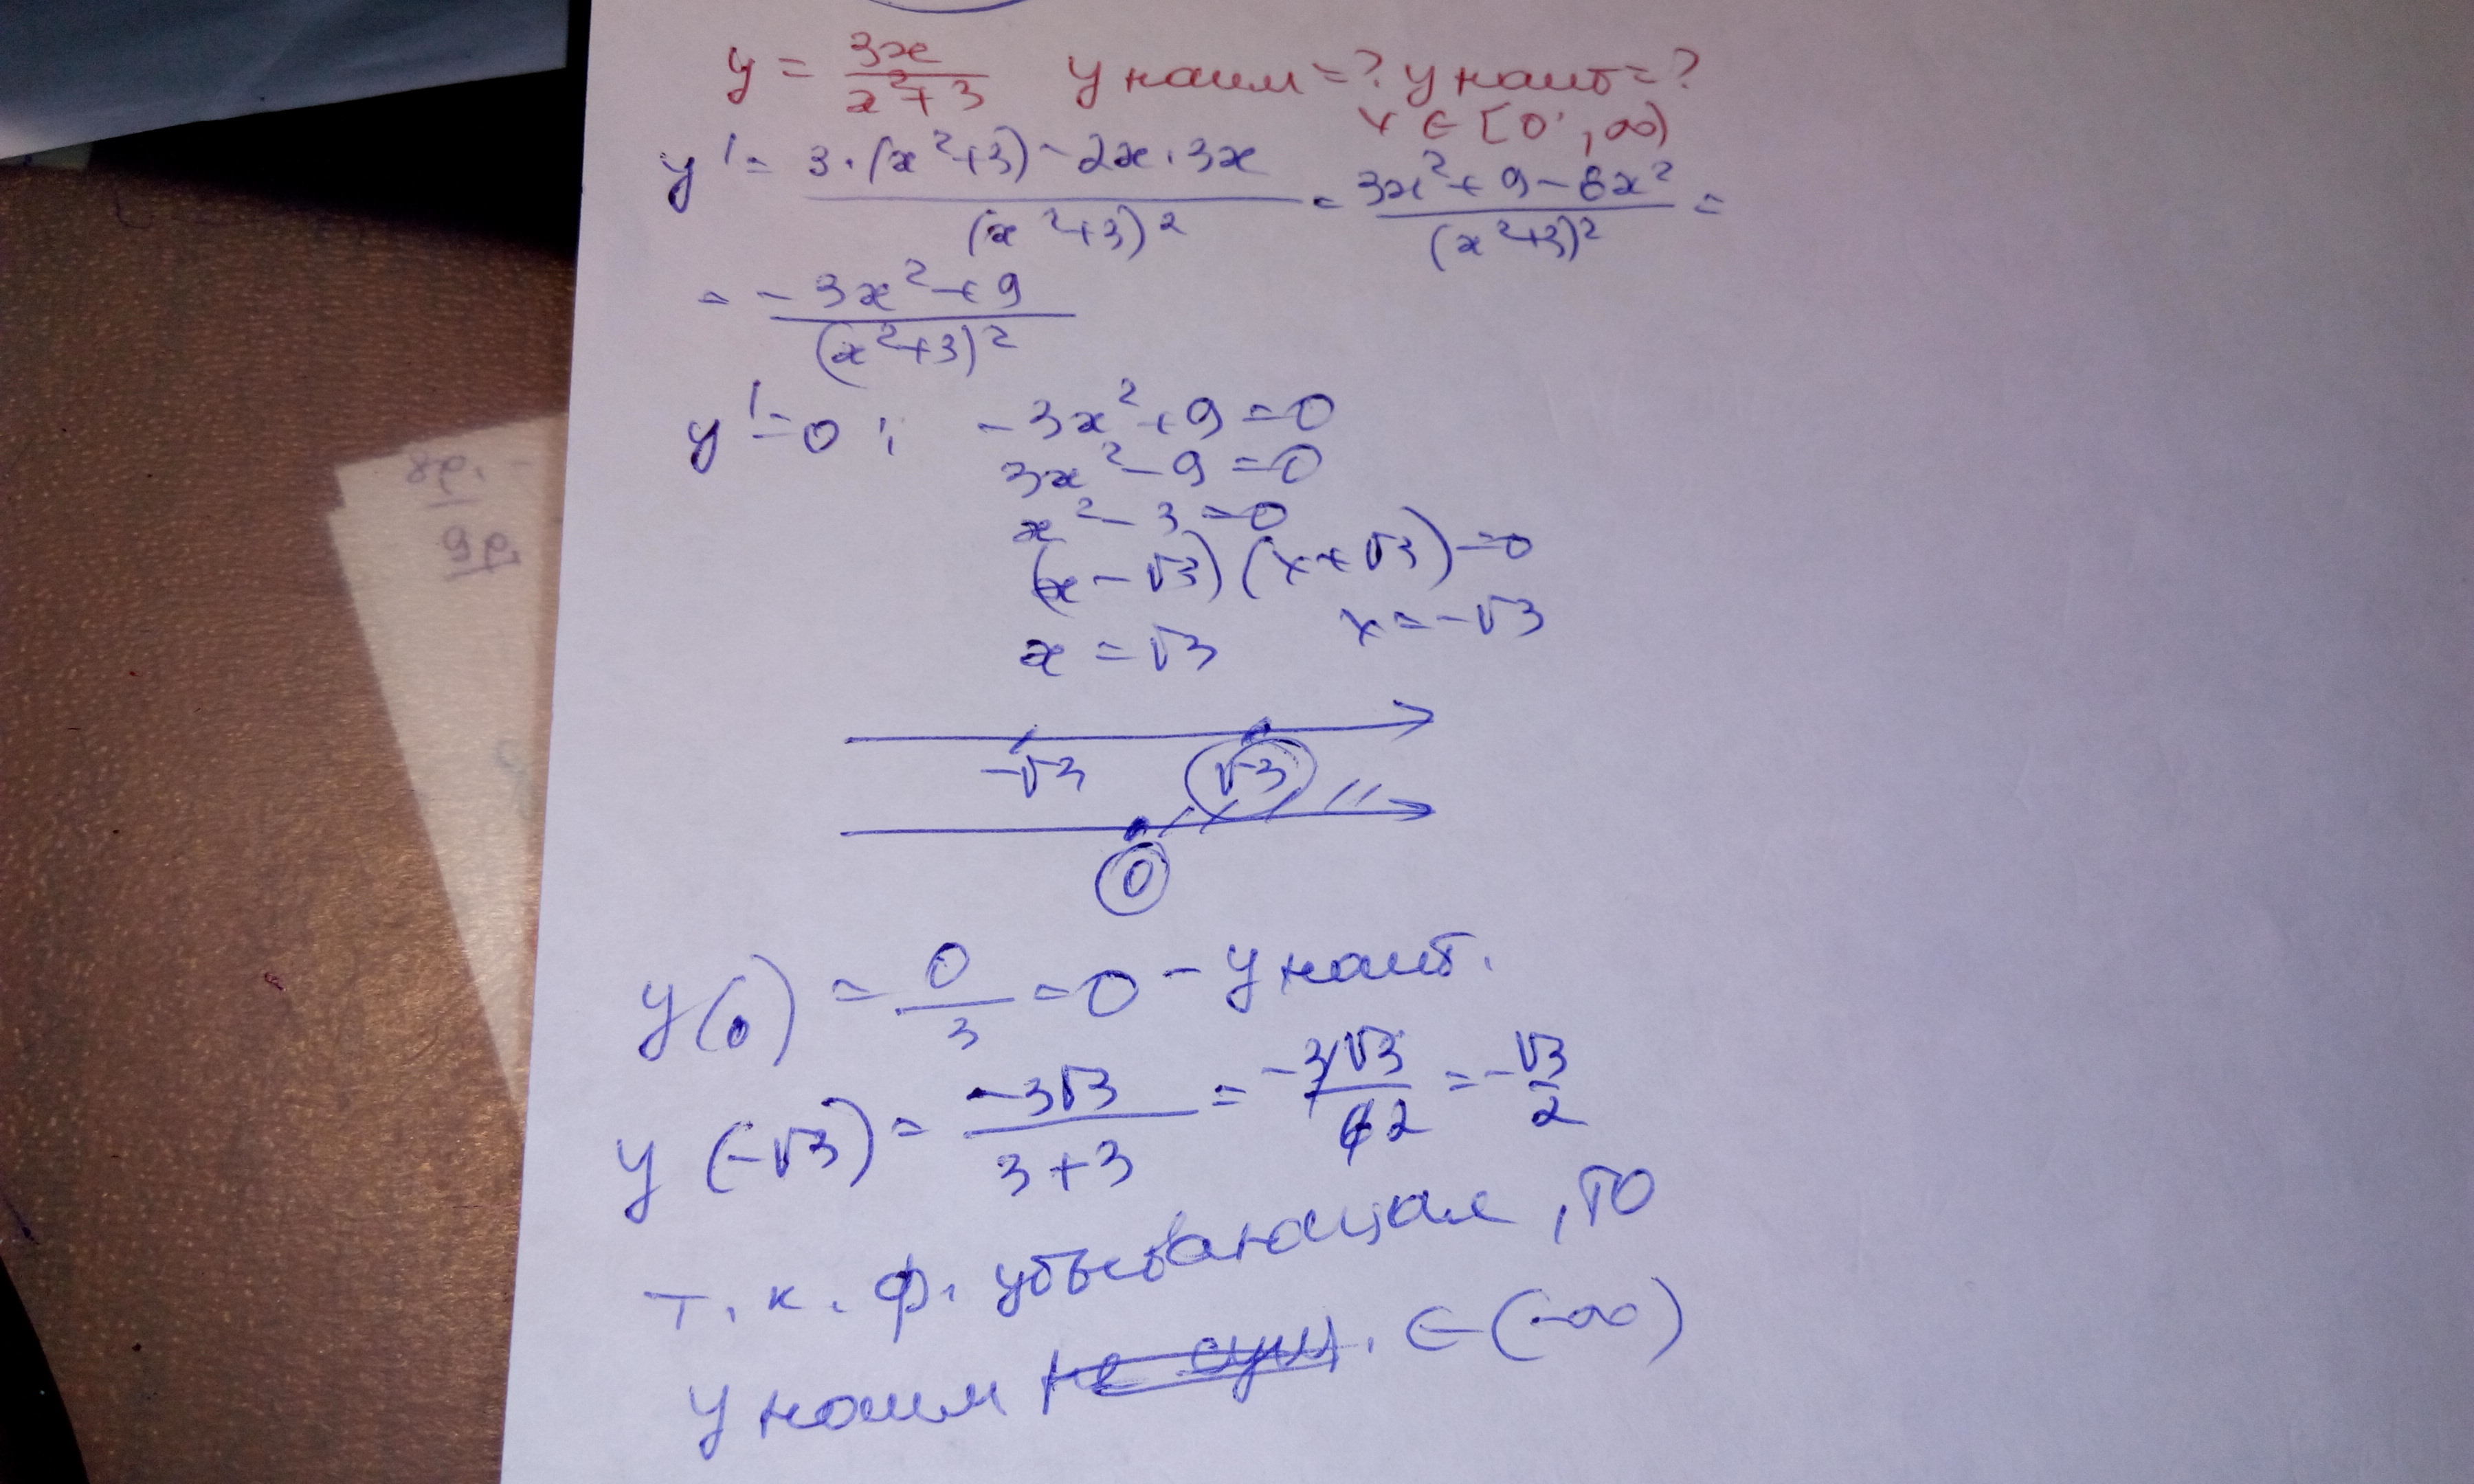 y = 3x/(x²+3) y наим = ? y наиб = ?
x ∈ [0 ; ∞)
y' = (3·(x²+3) - 2x·3x)/(x²+3)² = (3x²+9-6x²)/(x²+3)² =
= (-3x²+9)/(x²+3)²
y' = 0 ; -3x²+9=0
3x²-9=0
x²-3=0
(x-√3)(x+√3)=0
x=√3 x=-√3
-√3 √3
0
y(0) = 0/3 = 0 - y наиб.
y(-√3) = -3√3/(3+3) = -3√3/6 2 = -√3/2
т.к. ф. убывающая, то
y наим не сущ. ∈(-∞)